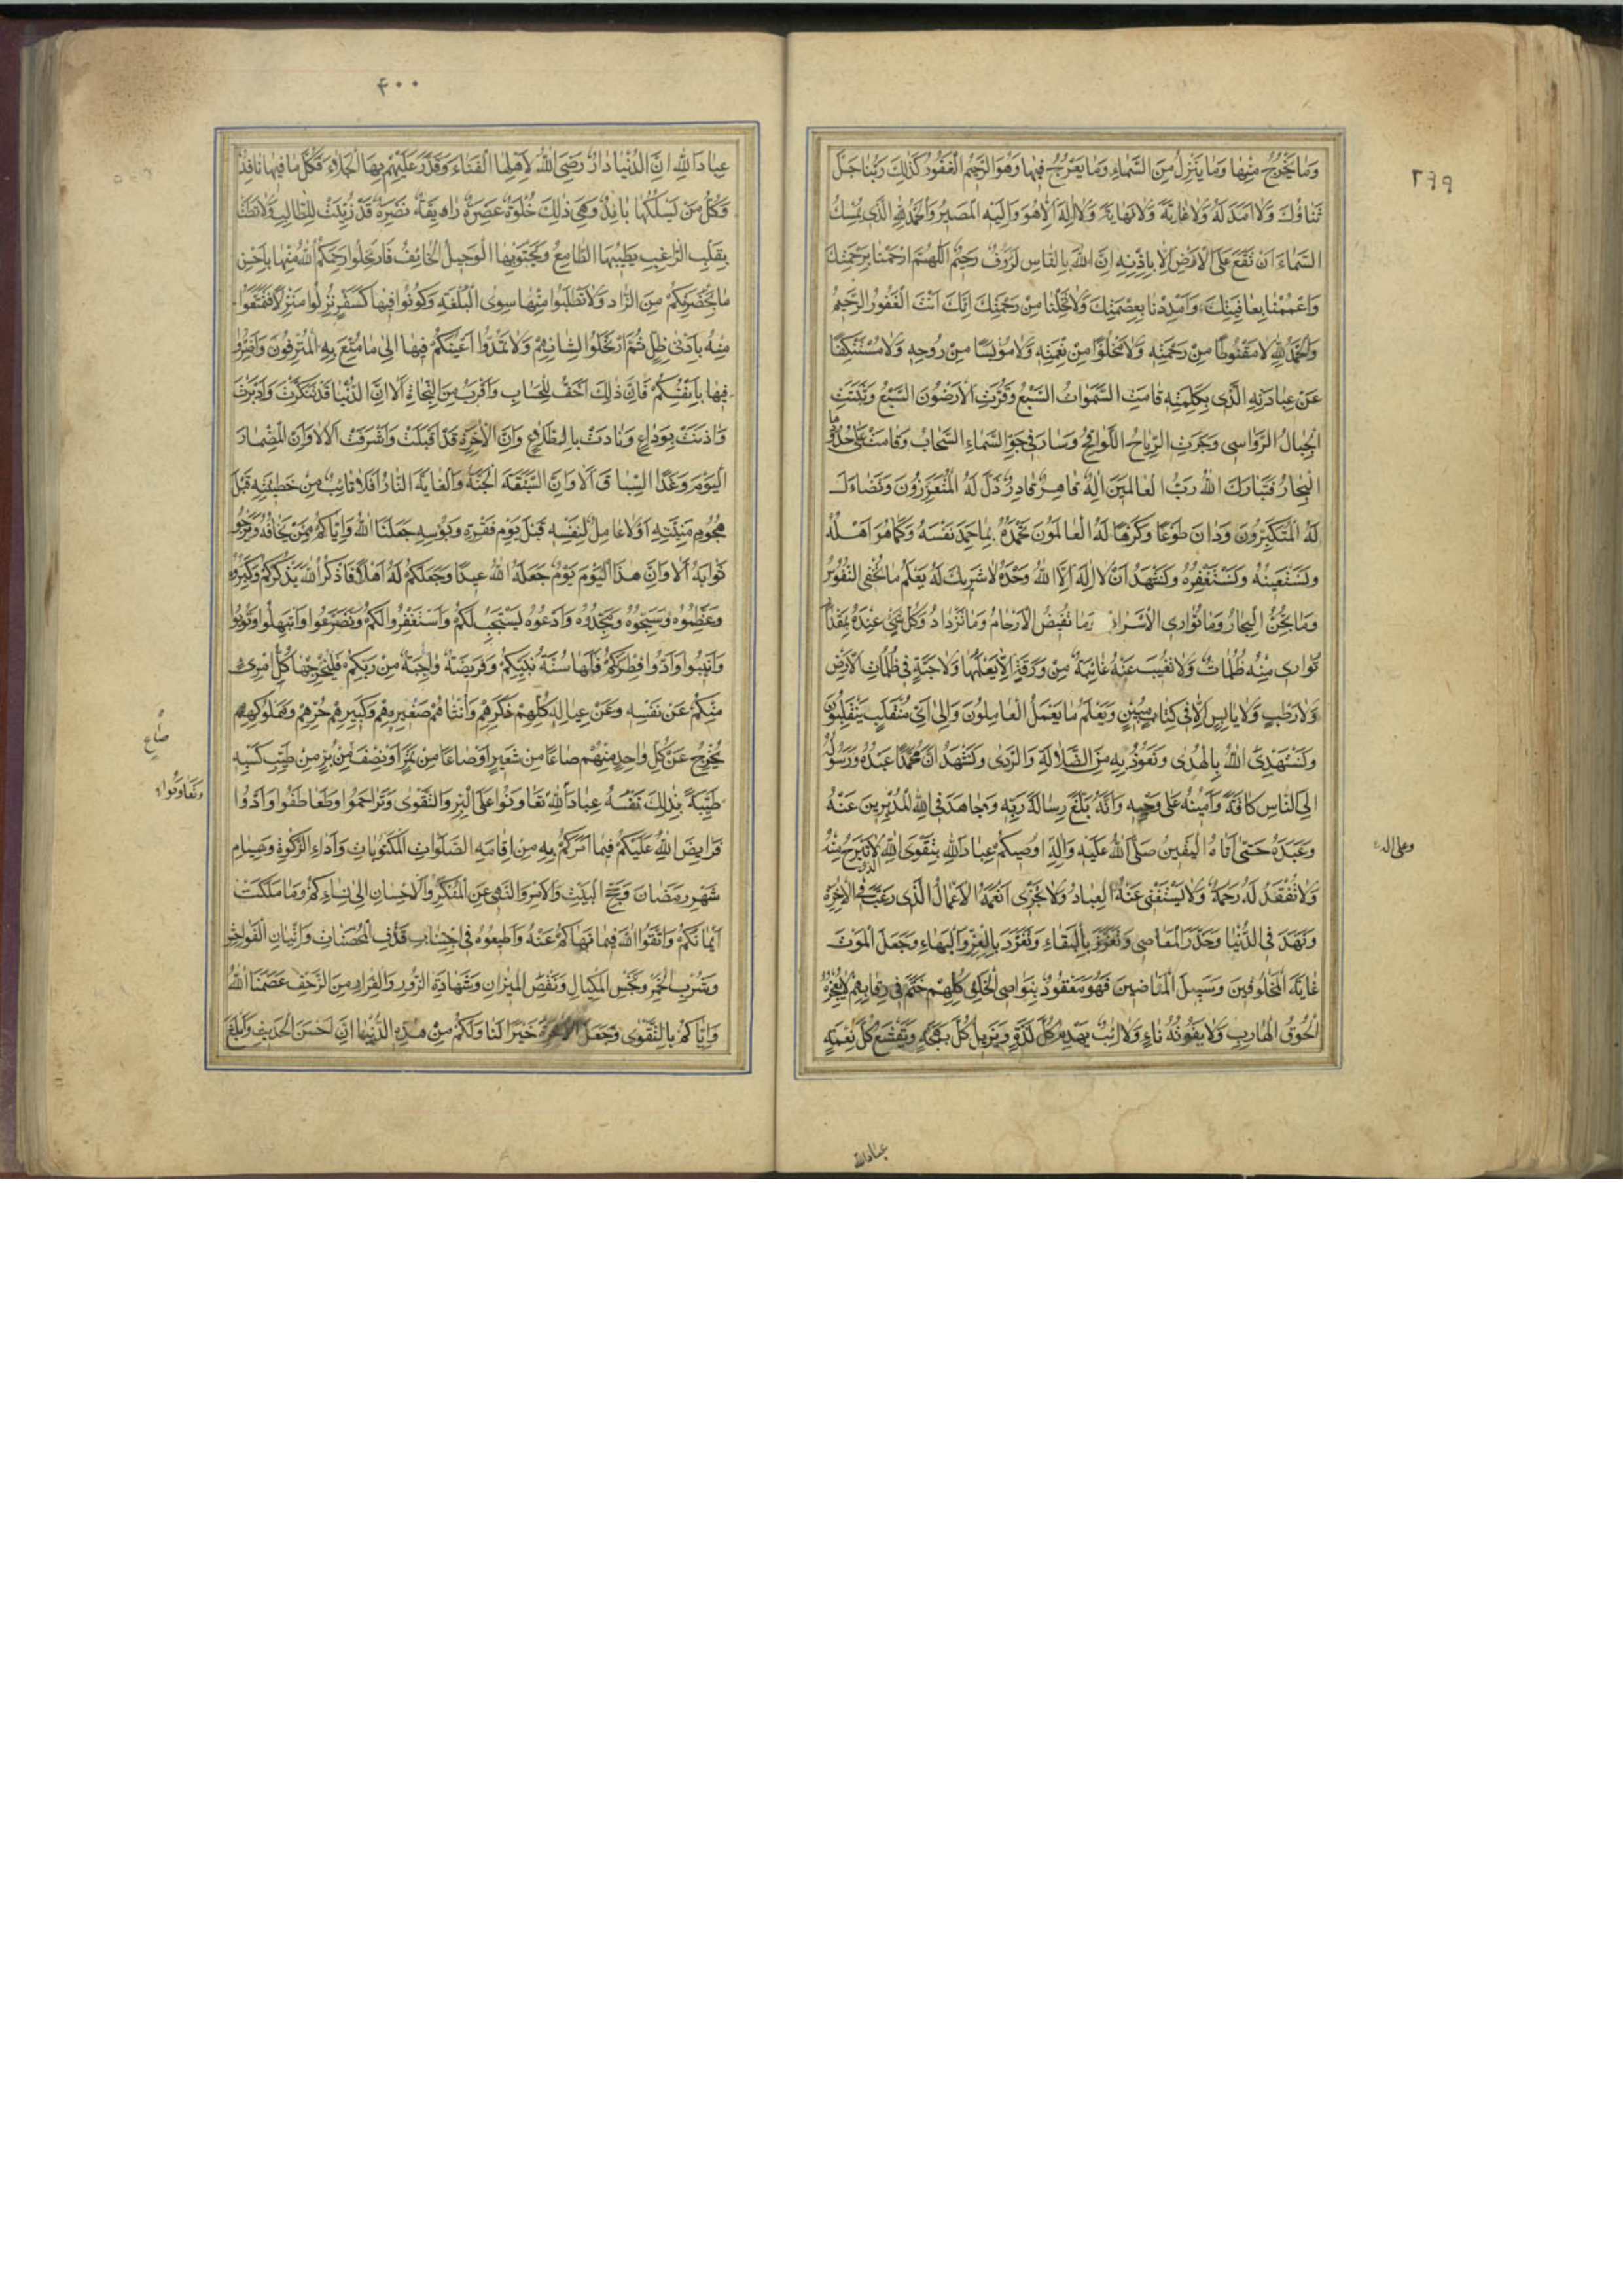 ٣٩٩
وَمٰا يَخْرُجُ مِنْهٰا وَمٰا يَنْزِلُ مِنَ السَّمٰاءِ وَمٰا يَعْرُجُ فِيهٰا وَهُوَ الرَّحِيمُ الْغَفُورُ كَذٰلِكَ رَبُّنٰا جَلَّ
ثَنٰاؤُكَ وَلٰا اَمَدَ لَهُ وَلٰا غٰايَةَ وَلٰا نِهٰايَةَ وَلٰا اِلٰهَ اِلّٰا هُوَ وَاِلَيْهِ الْمَصِيرُ وَالْحَمْدُ لِلّٰهِ الَّذِى يُمْسِكُ
السَّمٰاءَ اَنْ تَقَعَ عَلَى الْاَرْضِ اِلّٰا بِاِذْنِهِ اِنَّ اللّٰهَ بِالنّٰاسِ لَرَؤُفٌ رَحِيمٌ اَللّٰهُمَّ ارْحَمْنٰا بِرَحْمَتِكَ
وَاعْمُمْنٰا بِعٰافِيَتِكَ وَاَمْدِدْنٰا بِعِصْمَتِكَ وَلٰا تُخْلِنٰا مِنْ رَحْمَتِكَ اِنَّكَ اَنْتَ الْغَفُورُ الرَّحِيمُ
وَالْحَمْدُ لِلّٰهِ لٰا مَقْنُوطًا مِنْ رَحْمَتِهِ وَلٰا مَخْلُوًّا مِنْ نِعْمَتِهِ وَلٰا مُؤْيَسًا مِنْ رَوْحِهِ وَلٰا مُسْتَنْكِفًا
عَنْ عِبٰادَتِهِ الَّذِى بِكَلِمَتِهِ قٰامَتِ السَّمٰوٰاتُ السَّبْعُ وَقَرَّتِ الْاَرَضُونَ السَّبْعُ وَثَبَتَتِ
الْجِبٰالُ الرَّوٰاسِى وَجَرَتِ الرِّيٰاحُ اللَّوٰاقِحُ وَسٰارَ فِى جَوِّ السَّمٰاءِ السَّحٰابُ وَقٰامَتْ عَلٰى حُدُودِهٰا
الْبِحٰارُ فَتَبٰارَكَ اللّٰهُ رَبُّ الْعٰالَمِينَ اِلٰهٌ قٰاهِرٌ قٰادِرٌ ذَلَّ لَهُ الْمُتَعَزِّزُونَ وَتَضٰاءَلَ
لَهُ الْمُتَكَبِّرُونَ وَدٰانَ طَوْعًا وَكَرْهًا لَهُ الْعٰالَمُونَ نَحْمَدُهُ بِمٰا حَمِدَ نَفْسَهُ وَكَمٰا هُوَ اَهْلُهُ
وَنَسْتَعِينُهُ وَنَسْتَغْفِرُهُ وَنَشْهَدُ اَنْ لٰا اِلٰهَ اِلَّا اللّٰهُ وَحْدَهُ لٰا شَرِيكَ لَهُ يَعْلَمُ مٰا تُخْفِى النُّفُوسُ
وَمٰا تُجِنُّ الْبِحٰارُ وَمٰا تُوٰارِى الْاَسْرٰارُ وَمٰا تَغِيضُ الْاَرْحٰامُ وَمٰا تَزْدٰادُ وَكُلُّ شَىْءٍ عِنْدَهُ بِمِقْدٰارٍ
تُوٰارِى مِنْهُ ظُلُمٰاتٌ وَلٰا تَغِيبُ عَنْهُ غٰائِبَةٌ مِنْ وَرَقَةٍ اِلّٰا يَعْلَمُهٰا وَلٰا حَبَّةٍ فِى ظُلُمٰاتِ الْاَرْضِ
وَلٰا رَطْبٍ وَلٰا يٰابِسٍ اِلّٰا فِى كِتٰابٍ مُبِينٍ وَيَعْلَمُ مٰا يَعْمَلُ الْعٰامِلُونَ وَاِلٰى اَىِّ مُنْقَلَبٍ يَنْقَلِبُونَ
وَنَسْتَهْدِى اللّٰهَ بِالْهُدٰى وَنَعُوذُ بِهِ مِنَ الضَّلٰالَةِ وَالرَّدٰى وَنَشْهَدُ اَنَّ مُحَمَّدًا عَبْدُهُ وَرَسُولُهُ
اِلَى النّٰاسِ كٰافَّةً وَاَمِينُهُ عَلٰى وَحْيِهِ وَاَنَّهُ بَلَّغَ رِسٰالَةَ رَبِّهِ وَجٰاهَدَ فِى اللّٰهِ الْمُدْبِرِينَ عَنْهُ
وَعَبَدَهُ حَتّٰى اَتٰاهُ الْيَقِينُ صَلَّى اللّٰهُ عَلَيْهِ وَاٰلِهِ اُوصِيكُمْ عِبٰادَ اللّٰهِ بِتَقْوَى اللّٰهِ الَّذِى لٰا تَبْرَحُ مِنْهُ
وعلى اله
وَلٰا تُفْقَدُ لَهُ رَحْمَةٌ وَلٰا يَسْتَغْنِى عَنْهُ الْعِبٰادُ وَلٰا تَجْزِى اَنْعُمَهُ الْاَعْمٰالُ الَّذِى رَغَّبَ فِى الْاٰخِرَةِ
وَزَهَّدَ فِى الدُّنْيٰا وَحَذَّرَ الْمَعٰاصِى وَتَعَزَّزَ بِالْبَقٰاءِ وَتَفَرَّدَ بِالْعِزِّ وَالْبَهٰاءِ وَجَعَلَ الْمَوْتَ
غٰايَةَ الْمَخْلُوقِينَ وَسَبِيلَ الْمٰاضِينَ فَهُوَ مَعْقُودٌ بِنَوٰاصِى الْخَلْقِ كُلِّهِمْ حَتْمٌ فِى رِقٰابِهِمْ لٰا يُعْجِزُهُ
لُحُوقُ الْهٰارِبِ وَلٰا يَفُوتُهُ نٰاءٍ وَلٰا اٰئِبٌ يَهْدِمُ كُلَّ لَذَّةٍ وَيُزِيلُ كُلَّ بَهْجَةٍ وَيَقْشَعُ كُلَّ نِعْمَةٍ
عباد الله
۴۰۰
عِبٰادَ اللّٰهِ اِنَّ الدُّنْيٰا دٰارٌ رَضِىَ اللّٰهُ لِاَهْلِهَا الْفَنٰاءَ وَقَدَّرَ عَلَيْهِمْ بِهَا الْجَلٰاءَ فَكُلُّ مٰا فِيهٰا نٰافِدٌ
وَكُلُّ مَنْ يَسْلُكُهٰا بٰائِدٌ وَهِىَ ذٰلِكَ حُلْوَةٌ خَضِرَةٌ رٰائِقَةٌ نَضِرَةٌ قَدْ زُيِّنَتْ لِلطّٰالِبِ وَلٰاطَتْ
بِقَلْبِ الرّٰاغِبِ يَطَّيِبُهَا الطّٰامِعُ وَيَجْتَوِيهَا الْوَجِلُ الْخٰائِفُ فَارْتَحِلُوا رَحِمَكُمُ اللّٰهُ مِنْهٰا بِاَحْسَنِ
مٰا بِحَضْرَتِكُمْ مِنَ الزّٰادِ وَلٰا تَطْلُبُوا مِنْهٰا سِوَى الْبُلْغَةِ وَكُونُوا فِيهٰا كَسَفْرٍ نَزَلُوا مَنْزِلًا فَتَمَتَّعُوا
مِنْهُ بِاَدْنٰى ظِلٍّ ثُمَّ ارْتَحَلُوا لِشَانِهِمْ وَلٰا تَمُدُّوا اَعْيُنَكُمْ فِيهٰا اِلٰى مٰا مُتِّعَ بِهِ الْمُتْرَفُونَ وَاَضِرُّوا
فِيهٰا بِاَنْفُسِكُمْ فَاِنَّ ذٰلِكَ اَخَفُّ لِلْحِسٰابِ وَاَقْرَبُ مِنَ النَّجٰاةِ اَلٰا اِنَّ الدُّنْيٰا قَدْ تَنَكَّرَتْ وَاَدْبَرَتْ
وَاٰذَنَتْ بِوَدٰاعٍ وَنٰادَتْ بِاطِّلٰاعٍ وَاِنَّ الْاٰخِرَةَ قَدْ اَقْبَلَتْ وَاَشْرَفَتْ اَلٰا وَاِنَّ الْمِضْمٰارَ
الْيَوْمَ وَغَدًا السِّبٰاقَ اَلٰا وَاِنَّ السَّبَقَةَ الْجَنَّةُ وَالْغٰايَةَ النّٰارُ اَفَلٰا تٰائِبٌ مِنْ خَطِيئَتِهِ قَبْلَ
هُجُومِ مَنِيَّتِهِ اَوَلٰا عٰامِلٌ لِنَفْسِهِ قَبْلَ يَوْمِ فَقْرِهِ وَبُؤْسِهِ جَعَلَنَا اللّٰهُ وَاِيّٰاكُمْ مِمَّنْ يَخٰافُهُ وَيَرْجُو
ثَوٰابَهُ اَلٰا وَاِنَّ هٰذَا الْيَوْمَ يَوْمٌ جَعَلَهُ اللّٰهُ عِيدًا وَجَعَلَكُمْ لَهُ اَهْلًا فَاذْكُرُوا اللّٰهَ يَذْكُرْكُمْ وَكَبِّرُوهُ
وَعَظِّمُوهُ وَسَبِّحُوهُ وَمَجِّدُوهُ وَادْعُوهُ يَسْتَجِبْ لَكُمْ وَاسْتَغْفِرُوا لَكُمْ وَتَضَرَّعُوا وَابْتَهِلُوا وَتُوبُوا
وَاَنِيبُوا وَاَدُّوا فِطْرَتَكُمْ فَاِنَّهٰا سُنَّةُ نَبِيِّكُمْ وَفَرِيضَةٌ وٰاجِبَةٌ مِنْ رَبِّكُمْ فَلْيُخْرِجْهٰا كُلُّ امْرِئٍ
مِنْكُمْ عَنْ نَفْسِهِ وَعَنْ عِيٰالِهِ كُلِّهِمْ ذَكَرِهِمْ وَاُنْثٰاهُمْ صَغِيرِهِمْ وَكَبِيرِهِمْ حُرِّهِمْ وَمَمْلُوكِهِمْ
يُخْرِجُ عَنْ كُلِّ وٰاحِدٍ مِنْهُمْ صٰاعًا مِنْ شَعِيرٍ اَوْ صٰاعًا مِنْ تَمْرٍ اَوْ نِصْفَ مِنْ بُرٍّ مِنْ طَيِّبِ كَسْبِهِ
صٰاعٍ
طَيِّبَةً بِذٰلِكَ نَفْسُهُ عِبٰادَ اللّٰهِ تَعٰاوَنُوا عَلَى الْبِرِّ وَالتَّقْوٰى وَتَرٰاحَمُوا وَتَعٰاطَفُوا وَاَدُّوا
وَتَعٰاوَنُوا
فَرٰايِضَ اللّٰهِ عَلَيْكُمْ فِيمٰا اَمَرَكُمْ بِهِ مِنْ اِقٰامَةِ الصَّلَوٰاتِ الْمَكْتُوبٰاتِ وَاَدٰاءِ الزَّكٰوةِ وَصِيٰامِ
شَهْرِ رَمَضٰانَ وَحَجِّ الْبَيْتِ وَالْاَمْرِ وَالنَّهْىِ عَنِ الْمُنْكَرِ وَالْاِحْسٰانِ اِلٰى نِسٰاءِكُمْ وَمٰا مَلَكَتْ
اَيْمٰانُكُمْ وَاتَّقُوا اللّٰهَ فِيمٰا نَهٰاكُمْ عَنْهُ وَاَطِيعُوهُ فِى اجْتِنٰابِ قَذْفِ الْمُحْصَنٰاتِ وَاِتْيٰانِ الْفَوٰاحِشِ
وَشُرْبِ الْخَمْرِ وَبَخْسِ الْمِكْيٰالِ وَنَقْصِ الْمِيزٰانِ وَشَهٰادَةِ الزُّورِ وَالْفِرٰارِ مِنَ الزَّحْفِ عَصَمَنَا اللّٰهُ
وَاِيّٰاكُمْ بِالتَّقْوٰى وَجَعَلَ الْاٰخِرَةَ خَيْرًا لَنٰا وَلَكُمْ مِنْ هٰذِهِ الدُّنْيٰا اِنَّ اَحْسَنَ الْحَدِيثِ وَاَبْلَغَ